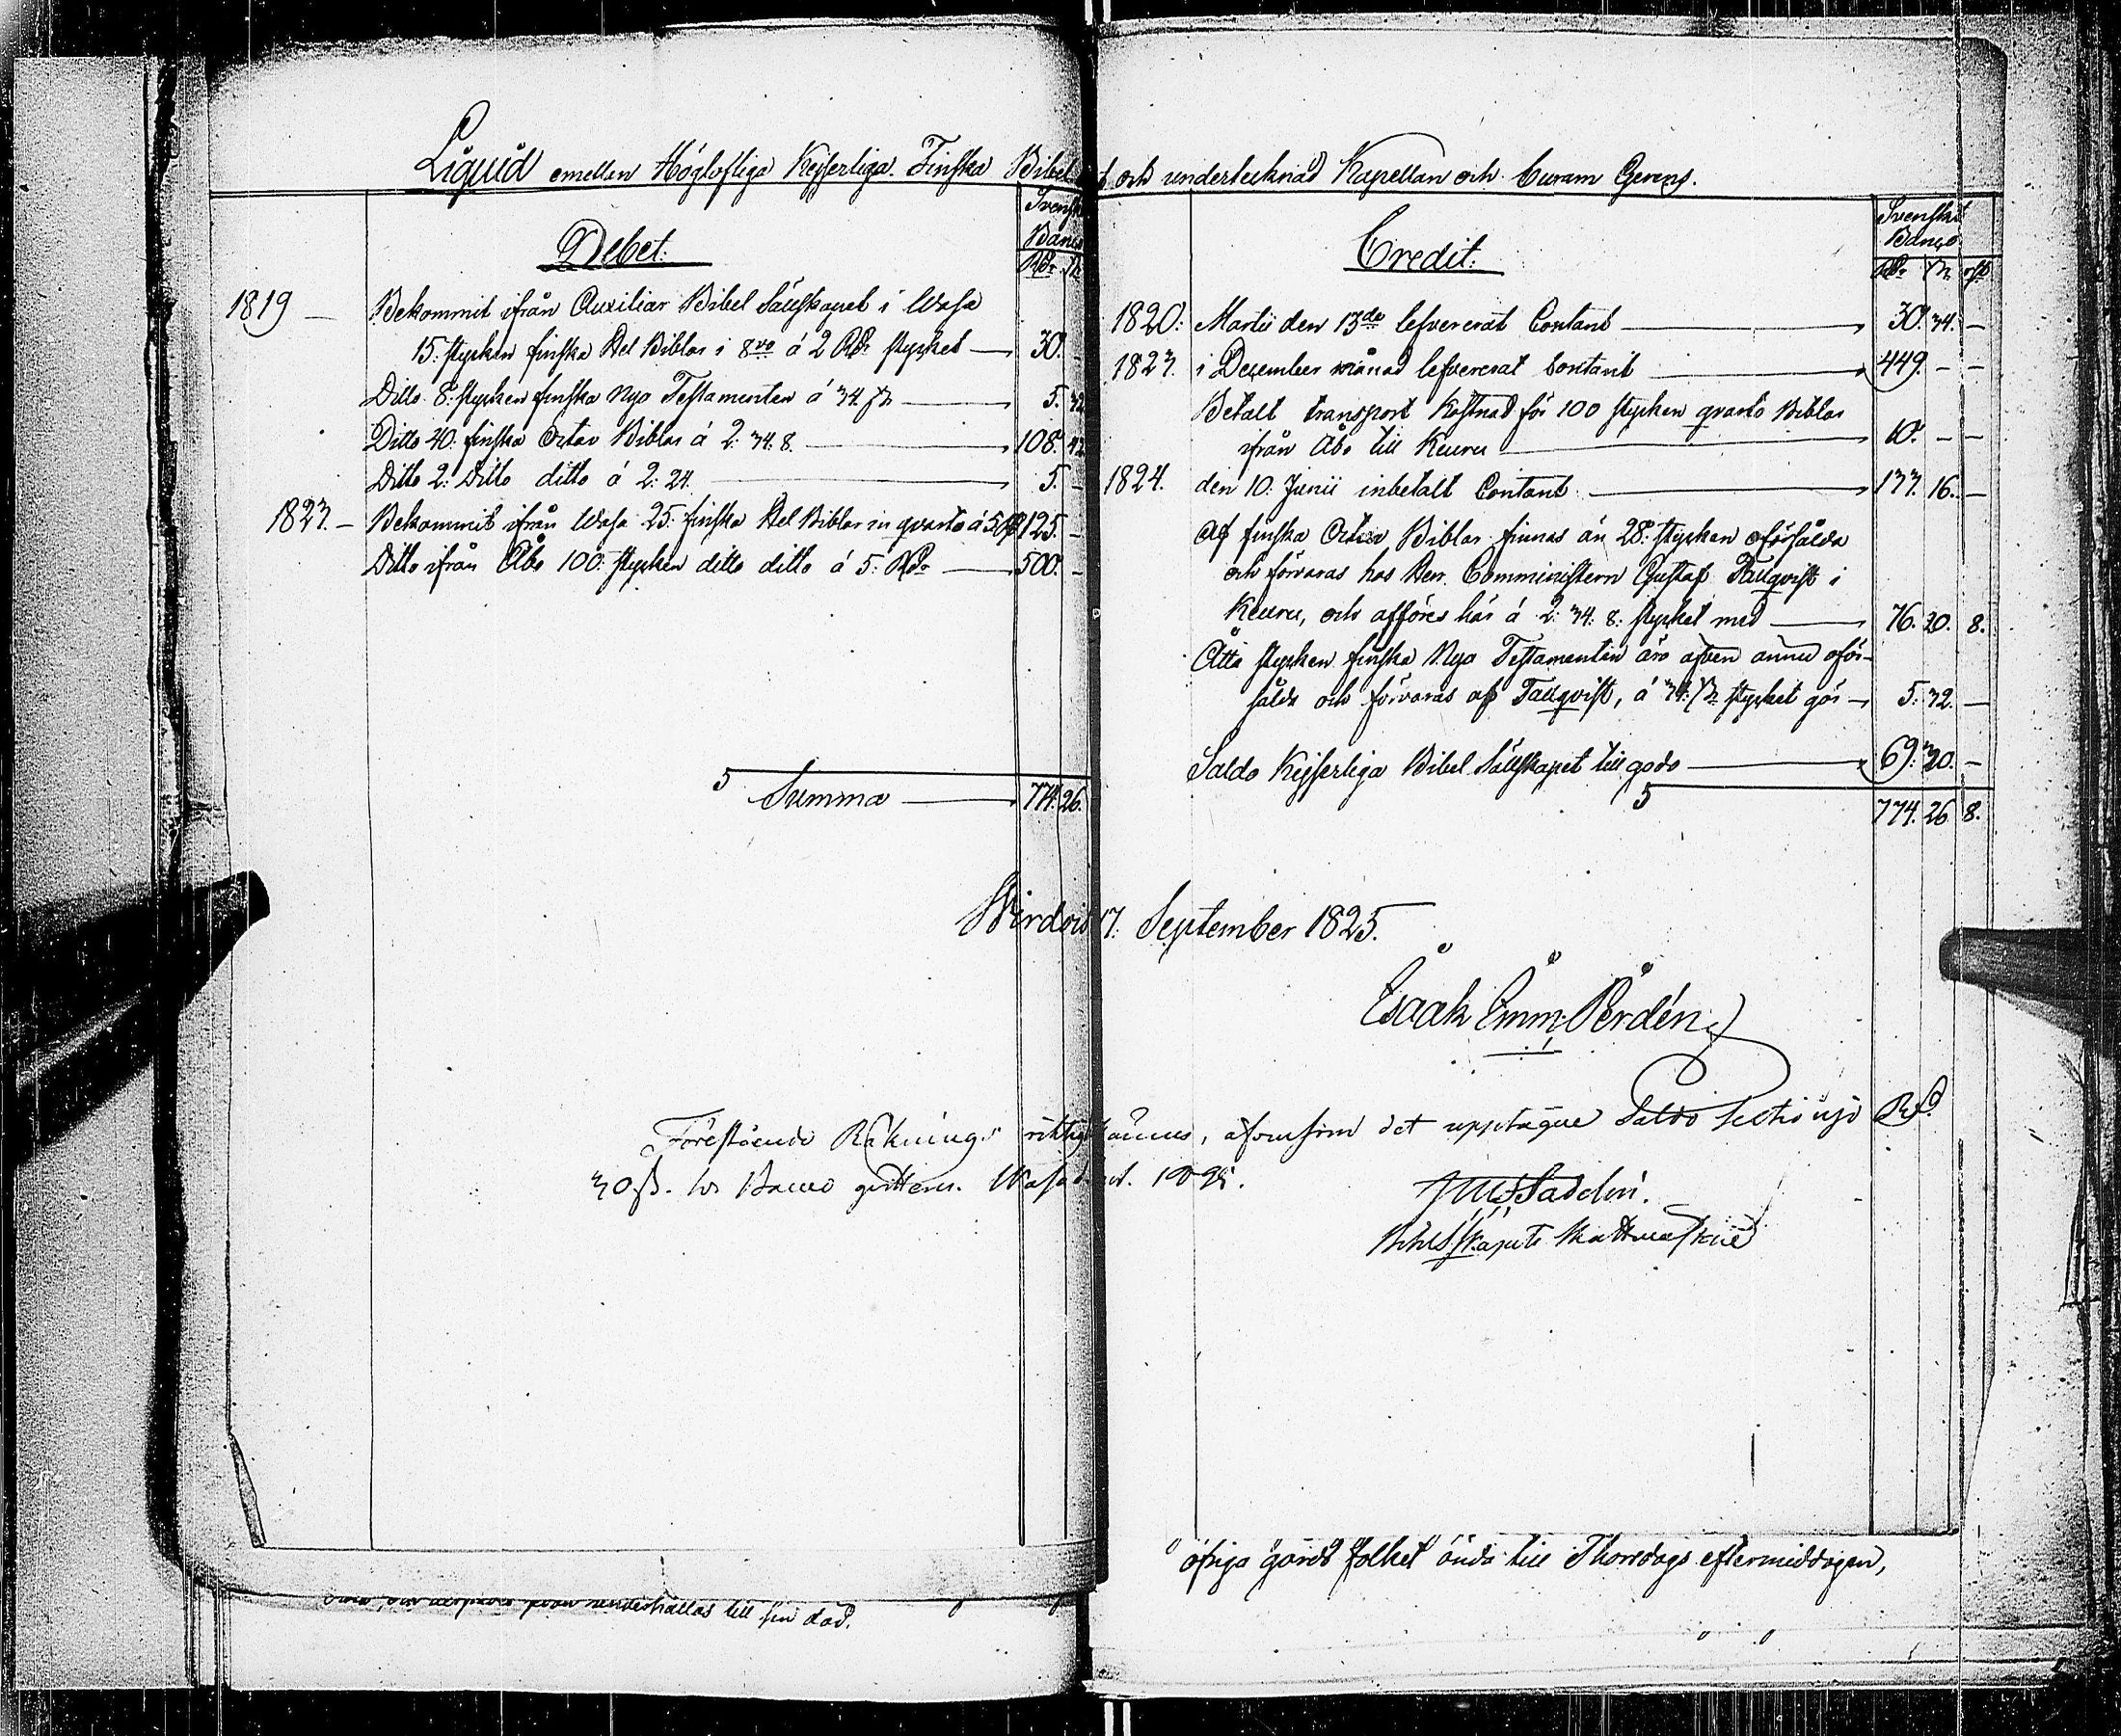 Liquid emellan Höglofliga Kejserliga Finska Bibel
Svensk
Banco
Debet.
RDr ß
1819 — Bekommit ifrån Auxiliar Bibel Sällskapet i Wasa
15. stycken finska Hel Biblar i 8vo á 2 RDr stycket — 30. -
Ditto 8. stycken finska Nya Testamenten á 34 ß — 5. 32
Ditto 40. finska Octav Biblar á 2. 34. 8. — 108. 42
Ditto 2. Ditto ditto á 2. 24. — 5. -
1823. — Bekommit ifrån Wasa 25. finska Hel Biblar in qvarto á 5 RD 125. -
Ditto ifrån Åbo 100. stycken ditto ditto á 5. RDr — 500. -
Summa — 774. 26.
och undertecknad Kapellan och Curam Gerens.
Svenskt
Banco
Credit.
RDr ß rst
1820. Martii den 13de lefvererat Contant — 30. 34. —
1823. i December månad lefvererat Contant — 449. — —
Betalt transport kostnad för 100 stycken qvarto Biblar
ifrån Åbo till Keuru — 10. — —
1824. den 10. Junii inbetalt Contant — 133. 16. —
Af finska Octav Biblar finnas än 28. stycken oförsålda
och förvaras hos Herr Comministern Gustaf Tallqvist i
Keuru, och afföres här á 2. 34. 8. stycket med — 76. 20. 8.
Åtta stycken finska Nya Testamenten äro äfven ännu oför-
sålda och förvaras af Tallqvist, á 34. ß stycket gör — 5. 32. —
Saldo Kejserliga Bibel Sällskapet till godo — 69. 20. —
774. 26 8.
Wirdois 17. September 1825.
Isaak Emm. Perdén
Förestående Räkning riktig kännes, äfvensom det upptagne Saldo Sextionio RD.
30 ß. Banco Wasa
Skattmästare
öfriga gårds folket ända till Thorsdags eftermiddagen,
underhållas till sin död.